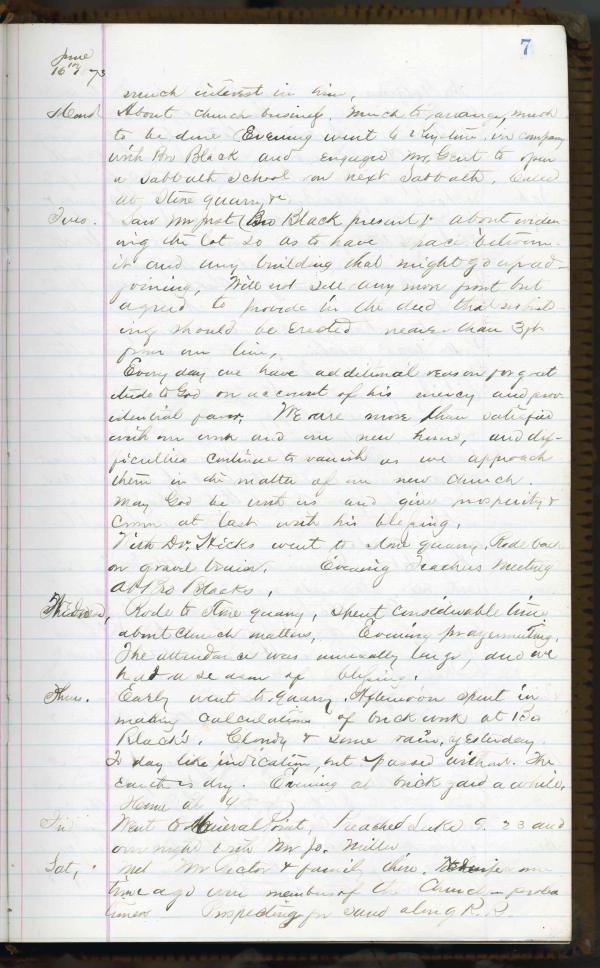 7
June
16th 73
much interest in him,
Mond About church business. Much to arrange, much
to be done Evening went to in company
with Bro Black and engaged Mr. Gent to open
a Sabbath School on next Sabbath. Called
at Stone quarry &
Tues. Saw (Bro Black present) about widen-
ing the lot so as to have space between
it and any building that might go up ad-
joining, Will not sell any more front but
agreed to provide in the deed that no build-
ing should be erected nearer than 3 ft
from our line,
Every day we have additional reason for grat
itude to God on account of his mercy and prov
idential favor, We are more than satisfied
with our work and our new home, and dif-
ficulties continue to vanish as we approach
them in the matter of our new church.
May God be with us and give prosperity &
Crown at last with his blessing,
With Dr. Hicks went to stone quarry. Rode back
on gravel train. Evening Teachers Meeting
at Bro Blacks,
Wed, Rode to Stone quarry, spent considerable time
about church matters, Evening prayermeeting,
The attendance was unusually large, and we
had a season of blessing.
Thurs. Early went to quarry. Afternoon spent in
making calculations of brick work at Bro
Black's. Cloudy & some rain, yesterday.
To day like indication, but passed without. The
Earth is dry. Evening at brick yard a while,
Home at 9
Fri Went to Mineral Point, Preached Luke 9. 23 and
over night with Mr Jo. Miller
Sat, Met Mr & family there. some
time ago were members of the Church - proba
tioners Prospecting for sand along R.R.